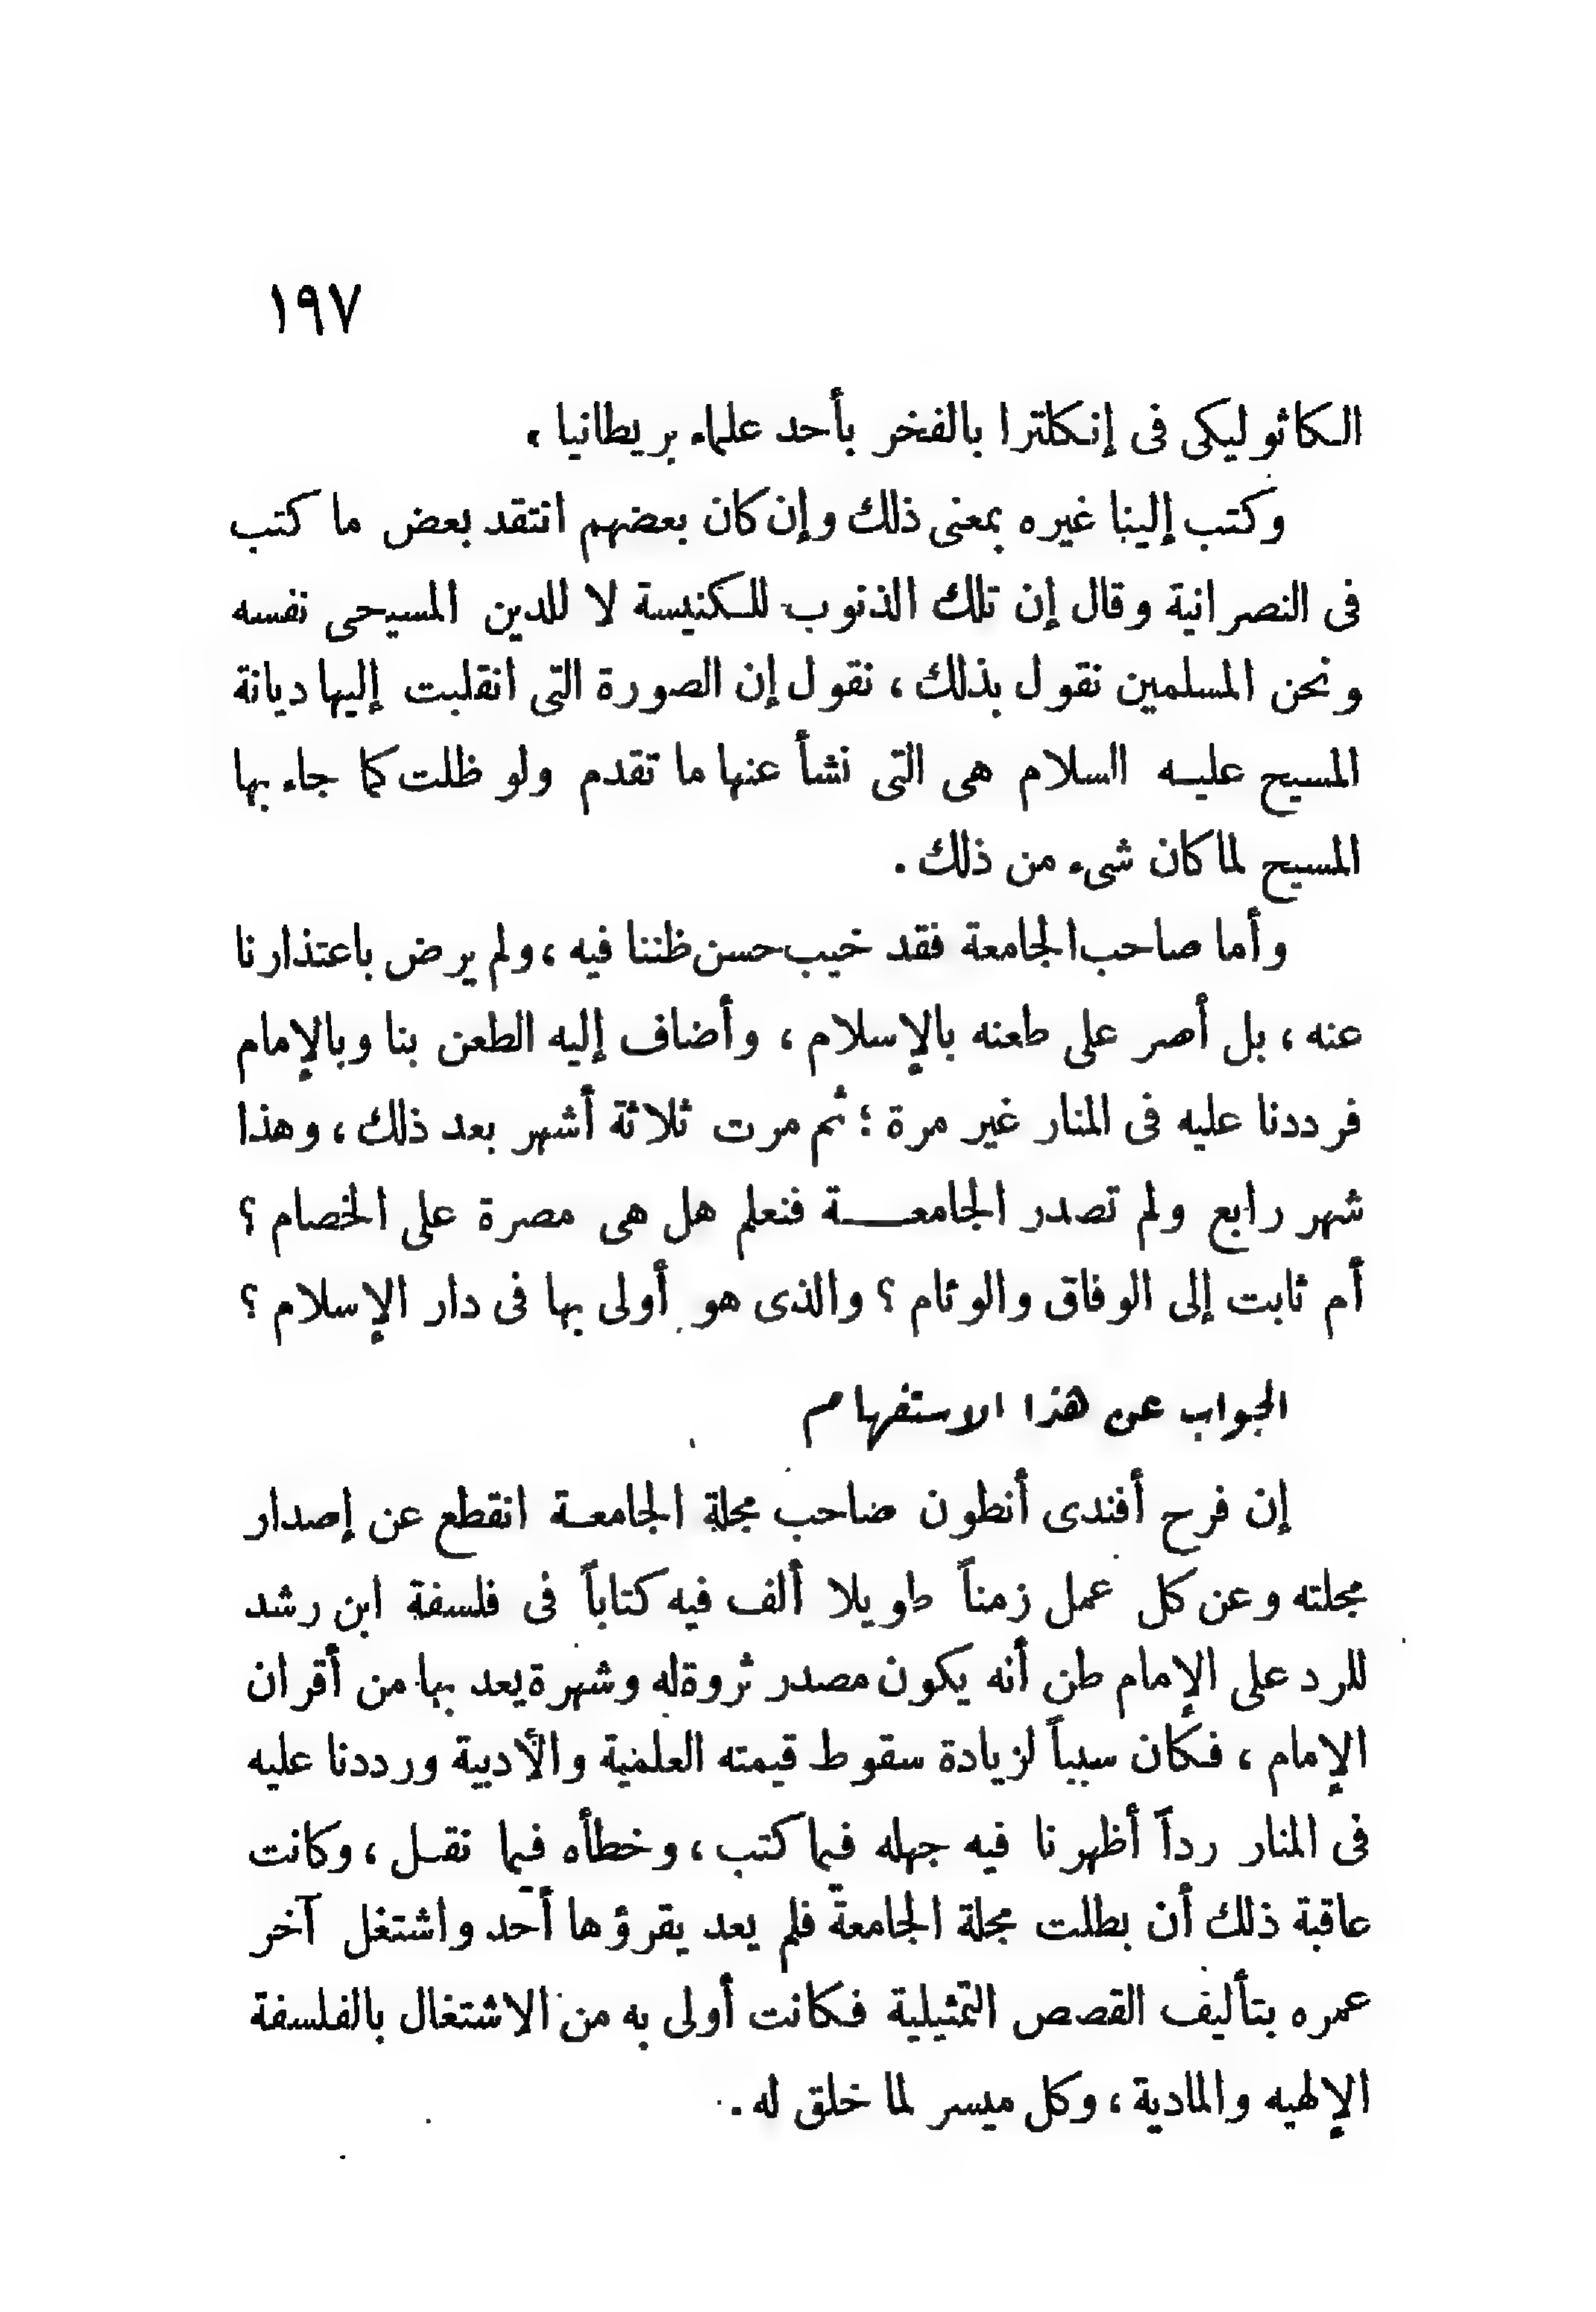 ١٩٧
الكاثوليكى فى إنكلترا بالفخر بأحد علماء بريطانيا .
وكتب إلينا غيره بمعنى ذلك وإن كان بعضهم انتقد بعض ما كتب
فى النصرانية وقال إن تلك الذنوب للكنيسة لا للدين المسيحى نفسه
ونحن المسلمين نقول بذلك ، نقول إن الصورة التى انقلبت إليها ديانة
المسيح عليه السلام هى التى نشأ عنها ما تقدم ولو ظلت كما جاء بها
المسيح لما كان شىء من ذلك .
وأما صاحب الجامعة فقد خيب حسن ظننا فيه ، ولم يرض باعتذارنا
عنه ، بل أصر على طعنه بالإسلام ، وأضاف إليه الطعن بنا وبالإمام
فرددنا عليه فى المنار غير مرة ؛ ثم مرت ثلاثة أشهر بعد ذلك ، وهذا
شهر رابع ولم تصدر الجامعـــة فنعلم هل هى مصرة على الخصام ؟
أم ثابت إلى الوفاق والوئام ؟ والذى هو أولى بها فى دار الإسلام ؟
الجواب عن هذا الاستفهام
إن فرح أفندى أنطون صاحب مجلة الجامعـة انقطع عن إصدار
مجلته وعن كل عمل زمناً طويلا ألف فيه كتاباً فى فلسفة ابن رشد
للرد على الإمام ظن أنه يكون مصدر ثروة له وشهرة يعد بها من أقران
الإمام ، فكان سبباً لزيادة سقوط قيمته العلمية والأدبية ورددنا عليه
فى المنار رداً أظهرنا فيه جهله فيما كتب ، وخطأه فيما نقـل ، وكانت
عاقبة ذلك أن بطلت مجلة الجامعة فلم يعد يقرؤها أحد واشتغل آخر
عمره بتأليف القصص التمثيلية فكانت أولى به من الاشتغال بالفلسفة
الإلهيه والمادية ، وكل ميسر لما خلق له .